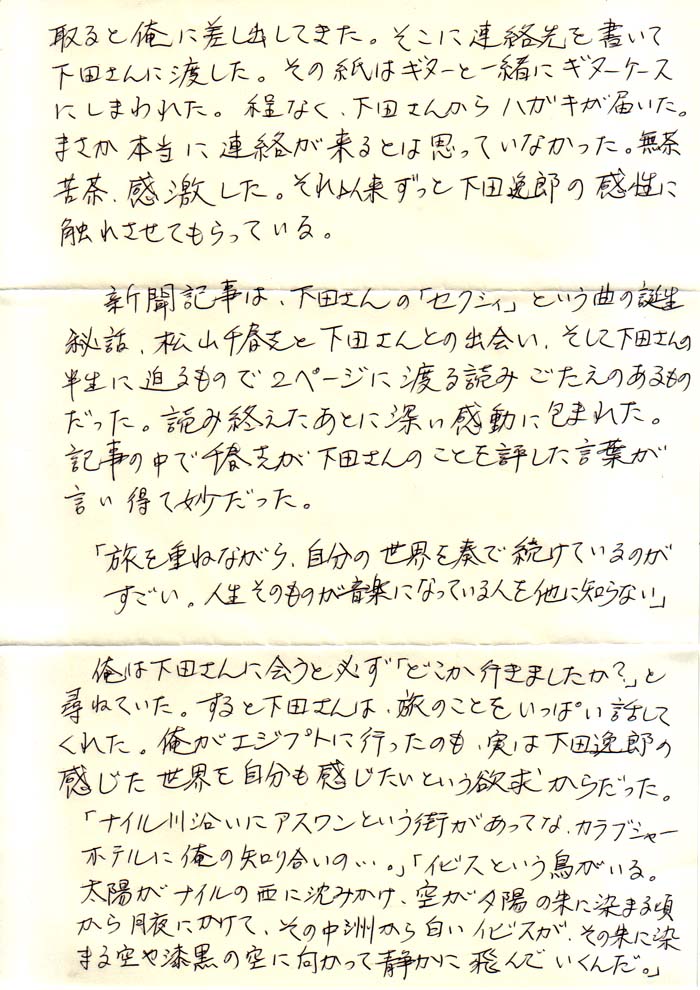 取ると俺に差し出してきた。そこに連絡先を書いて
下田さんに渡した。その紙はギターと一緒にギターケース
にしまわれた。程なく、下田さんからハガキが届いた。
まさか本当に連絡が来るとは思っていなかった。無茶
苦茶、感激した。それ以来ずっと下田逸郎の感性に
触れさせてもらっている。
新聞記事は、下田さんの「セクシィ」という曲の誕生
秘話、松山千春と下田さんとの出会い、そして下田さんの
半生に迫るもので2ページに渡る読みごたえのあるもの
だった。読み終えたあとに深い感動に包まれた。
記事の中で千春が下田さんのことを評した言葉が
言い得て妙だった。
「旅を重ねながら、自分の世界を奏で続けているのが
すごい。人生そのものが音楽になっている人を他に知らない」
俺は下田さんに会うと必ず「どこか行きましたか?」と
尋ねていた。すると下田さんは、旅のことをいっぱい話して
くれた。俺がエジプトに行ったのも、実は下田逸郎の
感じた世界を自分も感じたいという欲求からだった。
「ナイル川沿いにアスワンという街があってな、カラブシャー
ホテルに俺の知り合いの…。」「イビスという鳥がいる。
太陽がナイルの西に沈みかけ、空が夕陽の朱に染まる頃
から月夜にかけて、その中洲から白いイビスが、その朱に染
まる空や漆黒の空に向かって静かに飛んでいくんだ。」